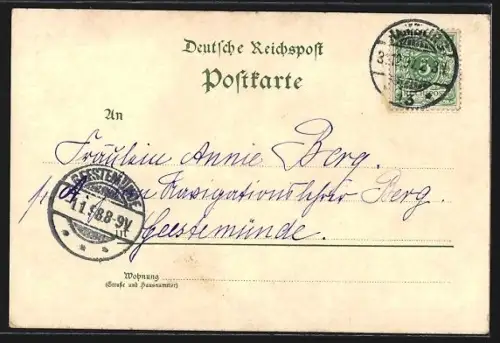 Deutsche Reichspost
Postkarte
HAMBURG
An
Fräulein Annie Berg.
Navigationslehrer Berg.
Geestemünde.
GEESTEMÜNDE
1.1.98.8-9V
in
Wohnung
(Straße und Hausnummer)